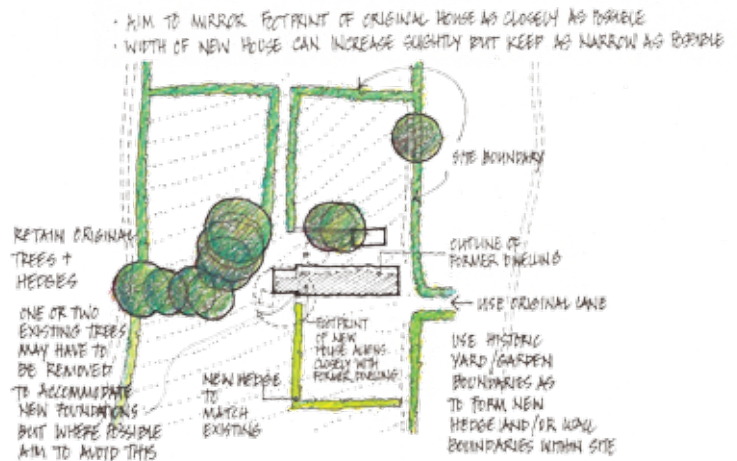 · AIM TO MIRROR FOOTPRINT OF ORIGINAL HOUSE AS CLOSELY AS POSSIBLE
· WIDTH OF NEW HOUSE CAN INCREASE SLIGHTLY BUT KEEP AS NARROW AS POSSIBLE
SITE BOUNDARY
RETAIN ORIGINAL
TREES +
HEDGES
OUTLINE OF
FORMER DWELLING
← USE ORIGINAL LANE
ONE OR TWO
EXISTING TREES
MAY HAVE TO
BE REMOVED
TO ACCOMMODATE
NEW FOUNDATIONS
BUT WHERE POSSIBLE
AIM TO AVOID THIS
FOOTPRINT
OF NEW
HOUSE ALIGNS
CLOSELY WITH
FORMER DWELLING
NEW HEDGE
TO
MATCH
EXISTING
USE HISTORIC
YARD/GARDEN
BOUNDARIES AS
TO FORM NEW
HEDGE AND/OR WALL
BOUNDARIES WITHIN SITE